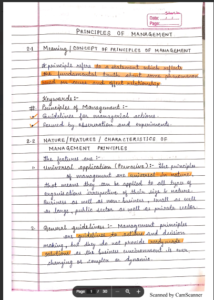 Date
Page
PRINCIPLES OF MANAGEMENT
2.1 Meaning / CONCEPT OF PRINCIPLES OF MANAGEMENT
A principle refers to a statement which reflects
the fundamental truth about some phenomenon
based on cause and effect relationship
Keywords :-
Principles of Management :-
Guidelines for managerial actions
Formed by observation and experiments.
2.2 NATURE / FEATURES / CHARACTERISTICS OF
MANAGEMENT PRINCIPLES
The features are :-
Universal application (Pervasive) :- The principles
of management are universal in nature
that means they can be applied to all types of
organisation irrespective of their size & nature.
Business as well as non-business, small as well
as large, public sector as well as private sector.
2. General guidelines :- Management principles
are guidelines to action and decision
making, but they do not provide readymade
solutions as the business environment is ever
changing or complex or dynamic
Page
Scanned by CamScanner